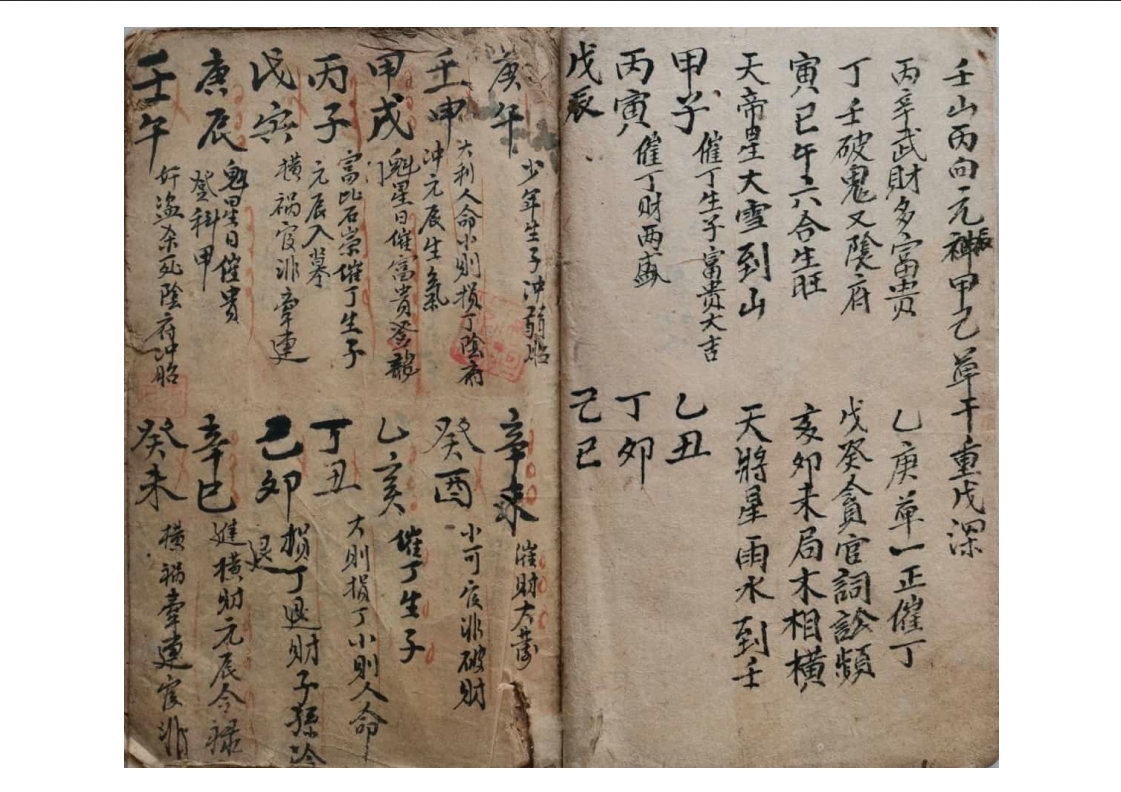 壬山丙向元神甲己草干重戊深
丙辛武財多富貴
乙庚草一正催丁
丁壬破鬼又陰府
戊癸貪官詞訟頻
寅巳午六合生旺
亥卯未局木相橫
天帝星大雪到山
天將星雨水到壬
甲子
催丁生子富貴大吉
乙丑
丙寅
催丁財两盛
丁卯
戊辰
己巳
庚午
少年生子冲弱胎
辛未
催財大
壬申
大利人命小則損丁陰府
冲元辰生氣
癸酉
小可官非破財
甲戌
魁星日催富貴
乙亥
催丁生子
丙子
富比石崇催丁生子
元辰入墓
丁丑
大則損丁小則人命
戊寅
橫禍官非牽連
己卯
損丁退財子孫
退
庚辰
魁星日催貴
登科甲
辛巳
進橫財元辰令禄
壬午
奸盗杀死陰府冲胎
癸未
橫禍牽連官非